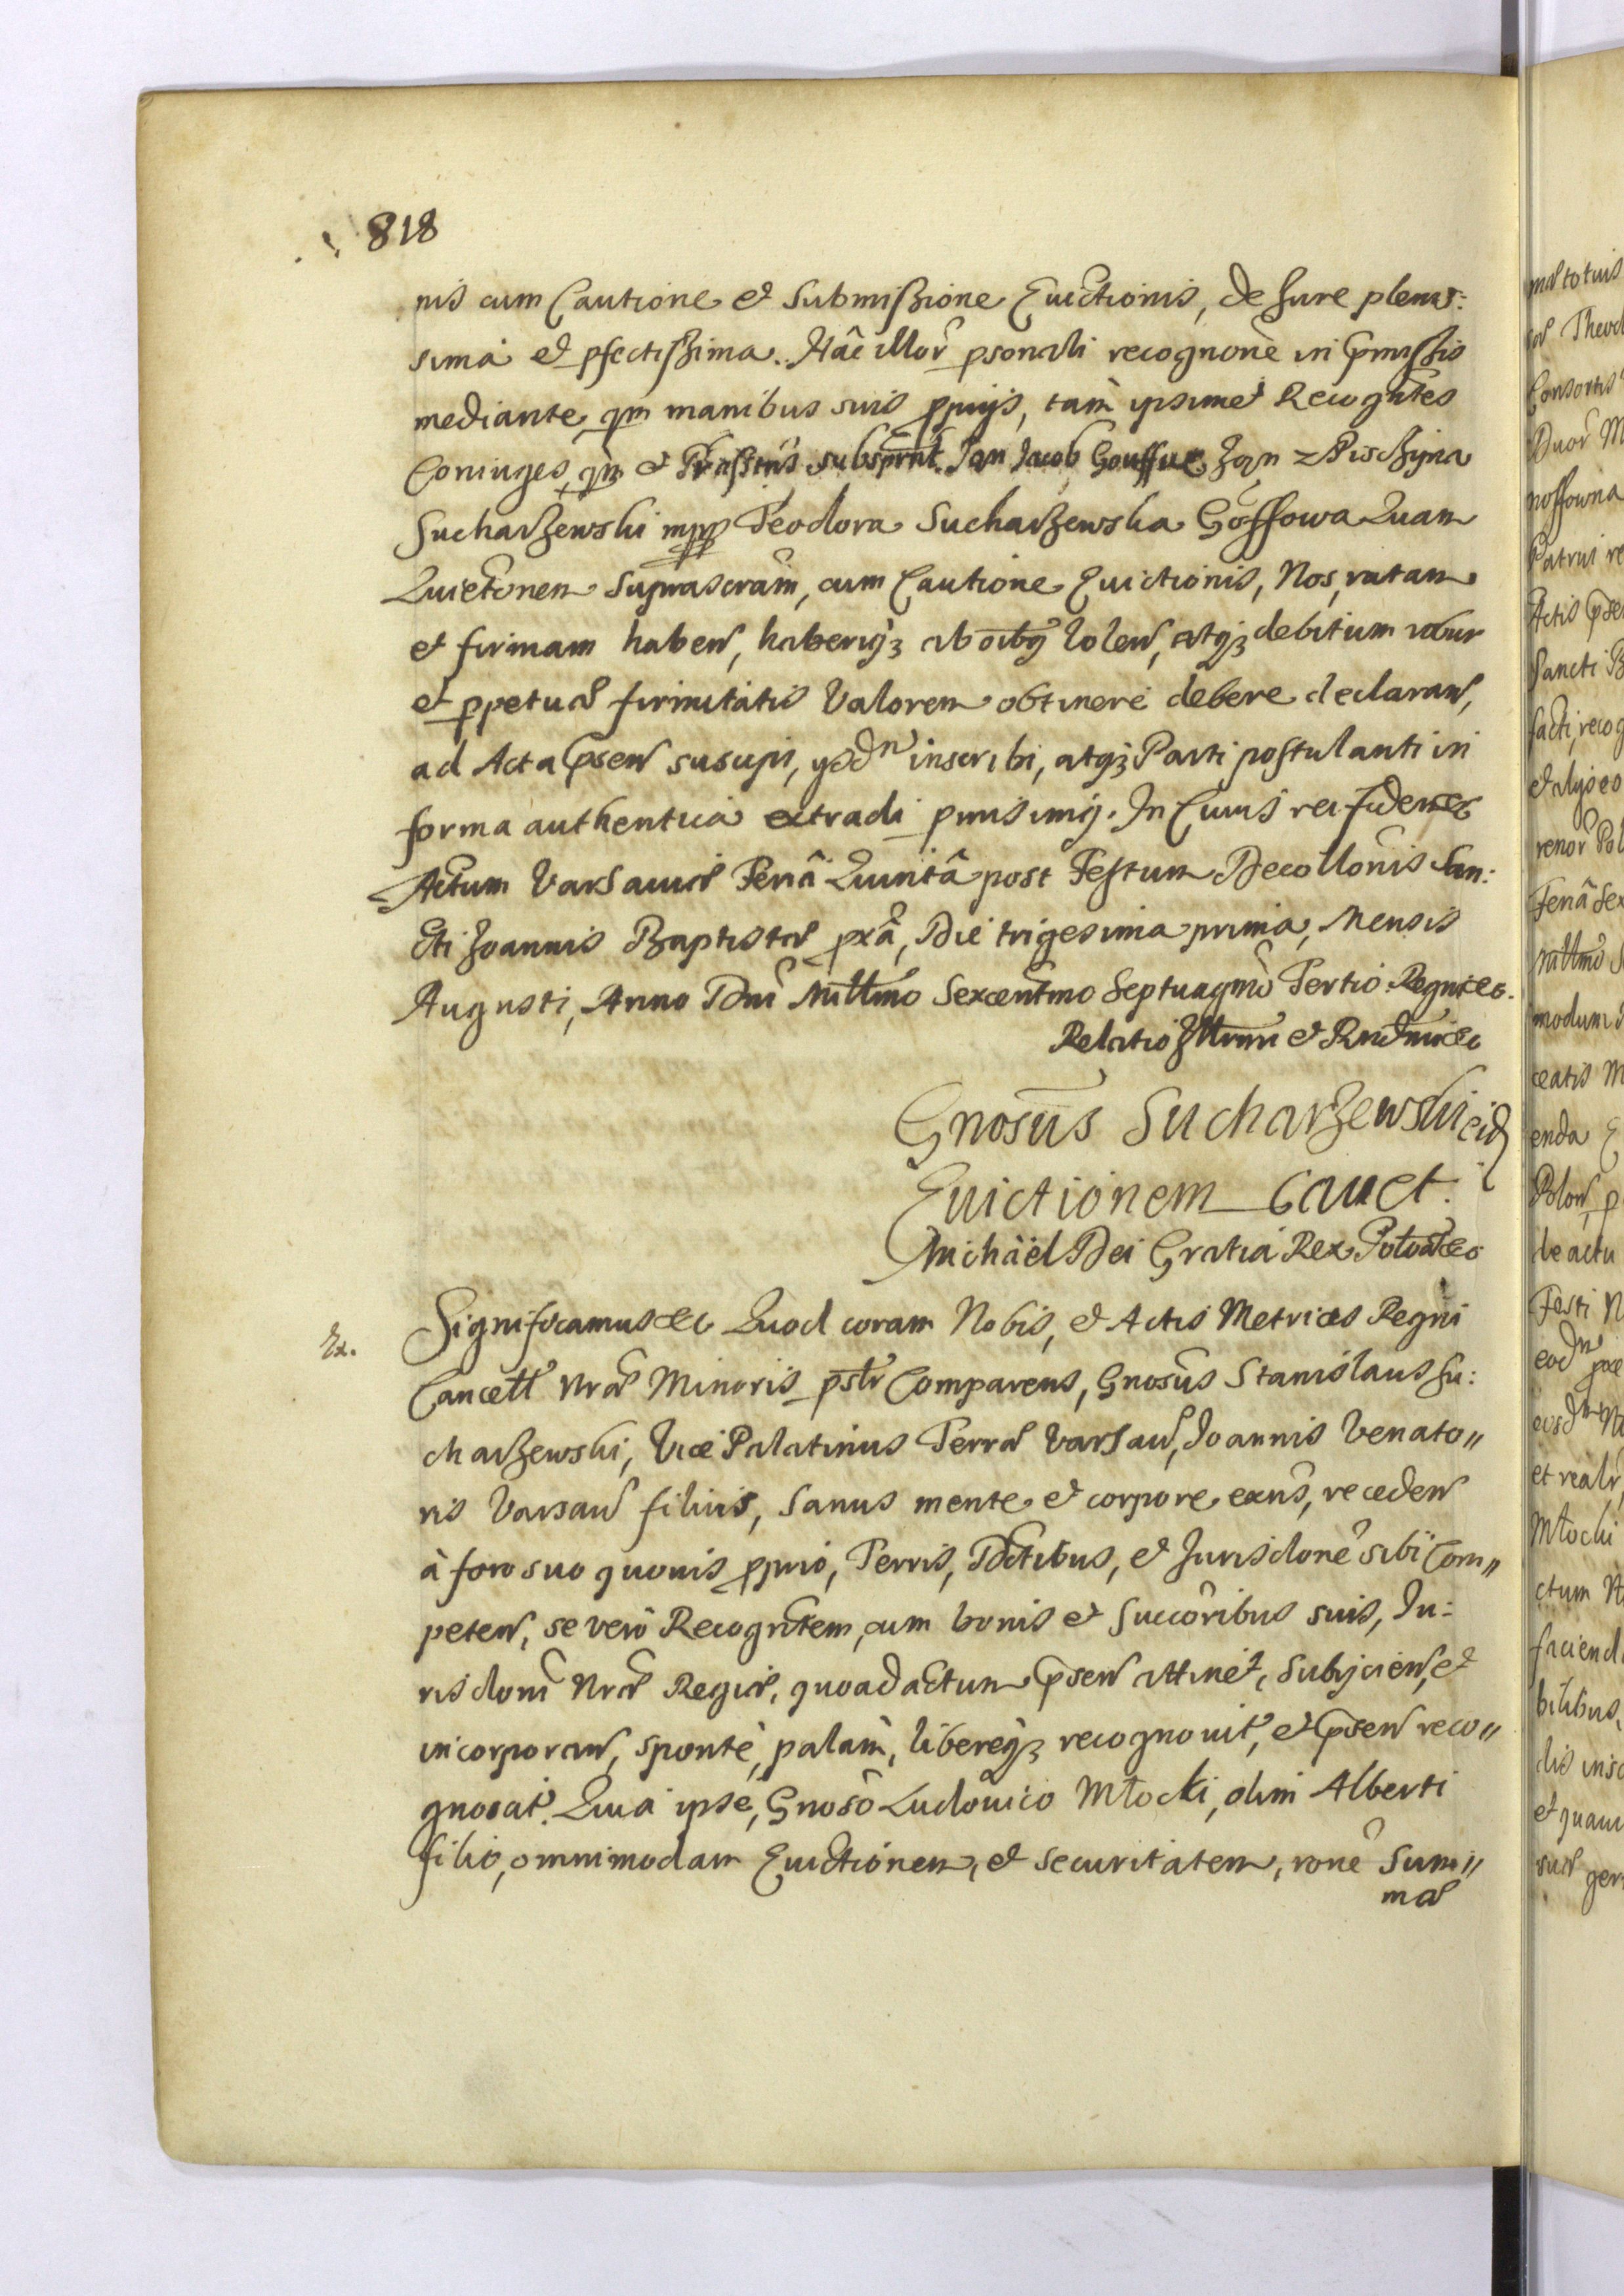 818
nis cum Cautione et Submissione Euictionis, de Jure plenis:
sima et pfectissima. Hac illor psonali recognone in pmissis
mediante, qm manibus suis pprijs, tam ipsimet Recogntes
Coniuges, qm et subscrpnt. Jan Jacob Gouffue, Jan z Pischyna
Sucharzewski mpp Teodora Sucharzewska Goffowa Quam
Quietonem Suprascram, cum Cautione Euictionis, Nos, ratam
et firmam haben, haberiq3 ab oibq3 Volen, atq3 debitum robur
et ppetuæ firmitatis Valorem obtinere debere declaran,
ad Acta psen suscipi, ijsdm inscribi, atq3 Parti postulanti in
forma authentica extradi pmisimq. In Cuius rei fidem etc
Actum Varsauiæ Feriâ Quintâ post Festum Decollonis San:
cti Joannis Baptistæ pxâ, Die trigesima prima, Mensis
Augusti, Anno Dni Millmo Sexcentmo Septuagmo Tertio. Regni etc.
Relatio Illrmi et Rndmi etc
Gnosus Sucharzewski eid
Euictionem cauet.
Michaël Dei Gratia Rex Poloæ etc
Ex.
Significamus etc Quod coram Nobis, et Actis Metrices Regni
Cancell Nræ Minoris pslr Comparens, Gnosus Stanislaus Su:
charzewski, Vice Palatinus Terræ Varsau, Joannis Venato"
ris Varsau filius, Sanus mente et corpore exns, receden
à foro suo quouis pprio, Terris, Dctibus, et Jurisdone sibi Com"
peten, se vero Recogntem, cum bonis et Succoribus suis, Ju:
risdoni Nræ Regiæ, quoad actum psen attinet, Subijcien, et
incorporan, sponte, palam, libereq3 recognouit, et psen reco"
gnoscit. Quia ipse, Gnoso Ludouico Młocki, olim Alberti
filio, omnimodam Euictionem, et securitatem, rone Sum"
mæ